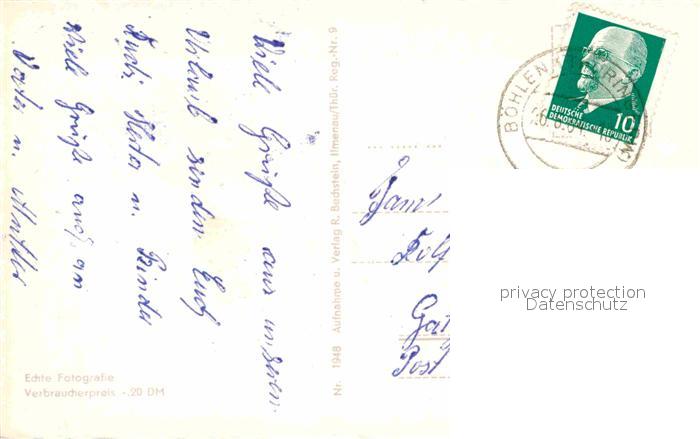 Viele Grüße aus unserem
Urlaub senden Euch
Vater u.
Viele Grüße auch an
Vater u. Mutter
Echte Fotografie
Verbraucherpreis -.20 DM
Nr. 1948 Aufnahme u. Verlag R. Bechstein, Ilmenau/Thür. Reg.-Nr. 9
Fam.
Rolf
Post
DEUTSCHE
DEMOKRATISCHE REPUBLIK
10
BÖHLEN
privacy protection
Datenschutz